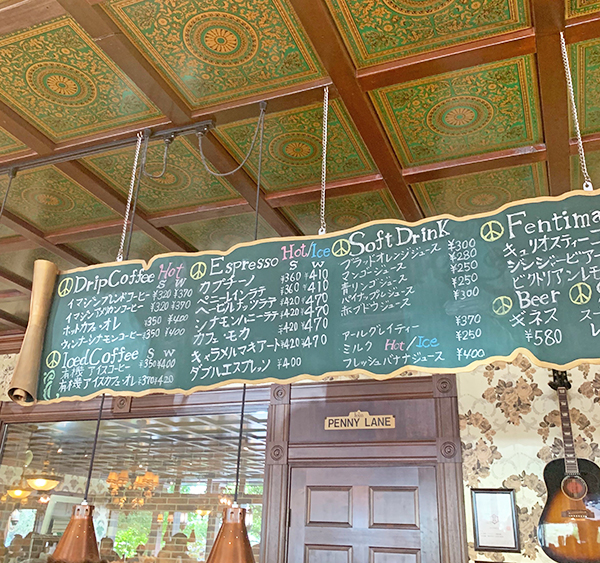 Drip Coffee Hot
S W
イマジンブレンドコーヒー ¥320 ¥370
イマジンアメリカンコーヒー ¥320 ¥370
ホットカフェ・オレ ¥350 ¥400
ウィンナーシナモンコーヒー ¥350 ¥400
Iced Coffee S W
有機アイスコーヒー ¥350 ¥400
有機アイスカフェ・オレ ¥370 ¥420
Espresso Hot/Ice
S W
カプチーノ ¥360 ¥410
ペニーレインラテ ¥360 ¥410
ヘーゼルナッツラテ ¥420 ¥470
シナモンハニーラテ ¥420 ¥470
カフェ・モカ ¥420 ¥470
キャラメルマキアート ¥420 ¥470
ダブルエスプレッソ ¥400
Soft Drink
ブラッドオレンジジュース ¥300
マンゴージュース ¥280
青リンゴジュース ¥250
パイナップルジュース ¥250
ホワイトブドウジュース ¥300
アールグレイティー ¥370
ミルク Hot/Ice ¥250
フレッシュバナナジュース ¥400
Fentima
キュリオスティー
ジンジービア
ビクトリアンレモ
Beer
ギネス
¥580
スー
レ
PENNY LANE